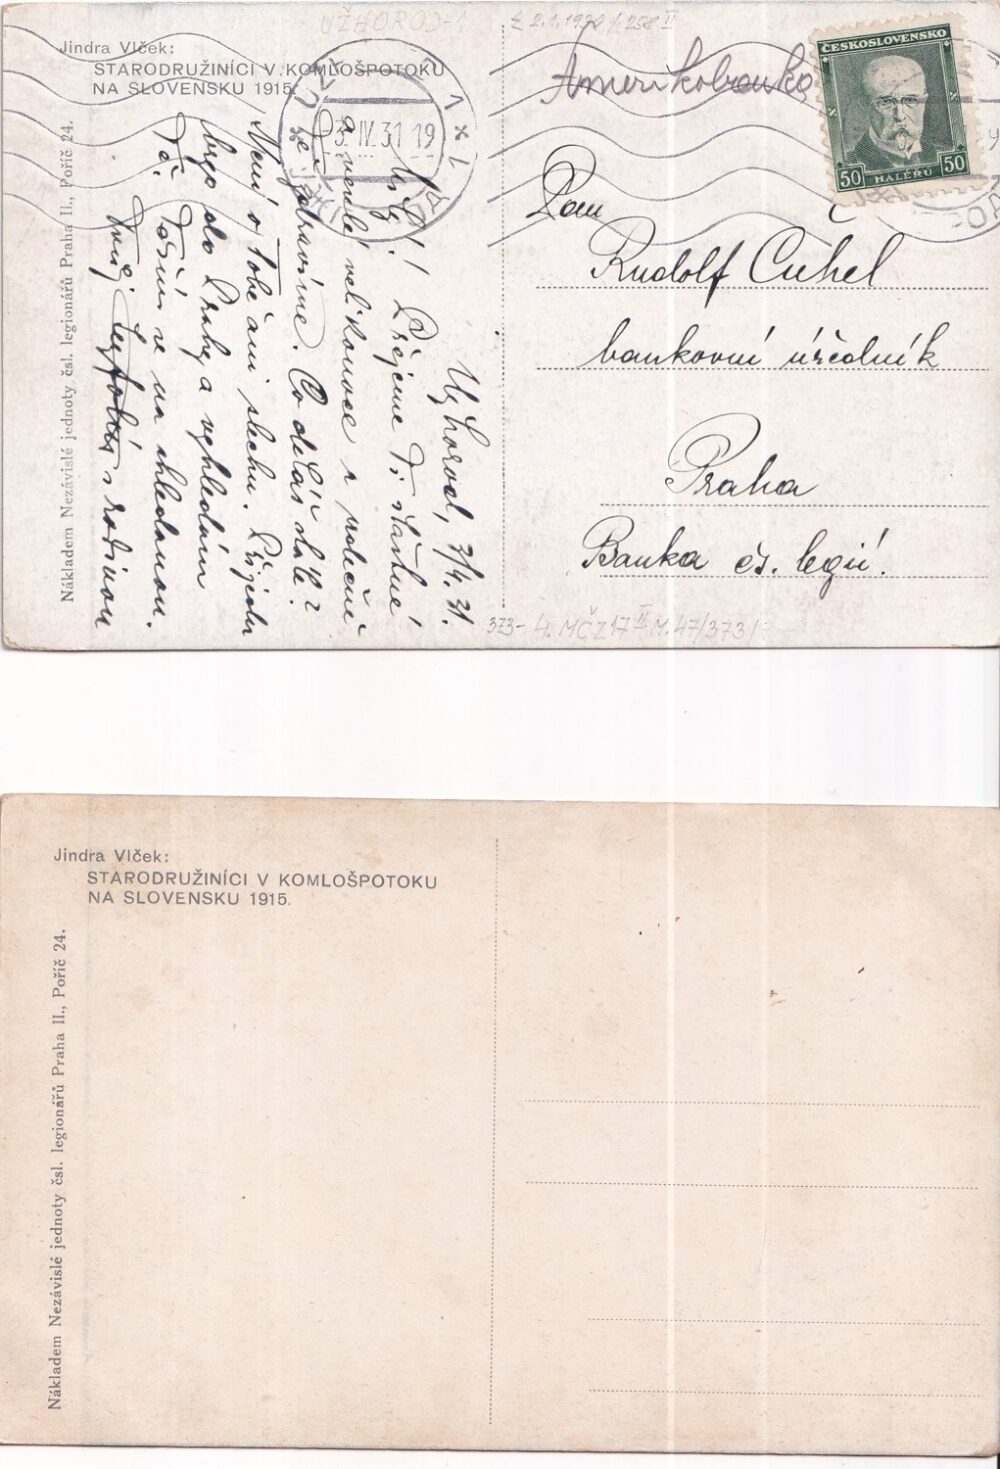 UŽHOROD-1
Ł 2.1.1930 / 258 II
Jindra Vlček:
STARODRUŽINÍCI V KOMLOŠPOTOKU
NA SLOVENSKU 1915.
Nákladem Nezávislé jednoty čsl. legionářů Praha II., Poříč 24.
3. IV. 31 19
ČESKOSLOVENSKO
50 HALÉŘŮ 50
Užhorod, 3/4. 31.
Přejeme Ti šťastné
a veselé velikonoce s
Tě zdravíme. Co děláš stále?
Není o Tobě ani slechu. Přijedu
brzo do Prahy a vyhledám
Tě. Těším se na shledanou.
Tvůj s rodinou
Pan
Rudolf Cuhel
bankovní úředník
Praha
Banka čs. legií.
373- 4. MČZ 17 II M. 47/373/7
Jindra Vlček:
STARODRUŽINÍCI V KOMLOŠPOTOKU
NA SLOVENSKU 1915.
Nákladem Nezávislé jednoty čsl. legionářů Praha II., Poříč 24.